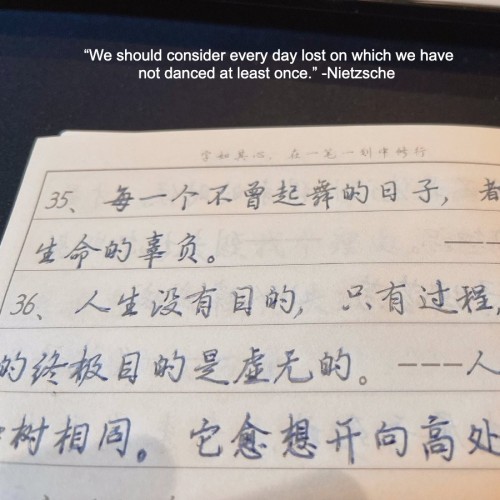 “We should consider every day lost on which we have
not danced at least once.” -Nietzsche
字如其心，在一笔一划中修行
35、每一个不曾起舞的日子，
生命的辜负。
36、人生没有目的，只有过程，
的终极目的是虚无的。---人
树相同。它愈想开向高处